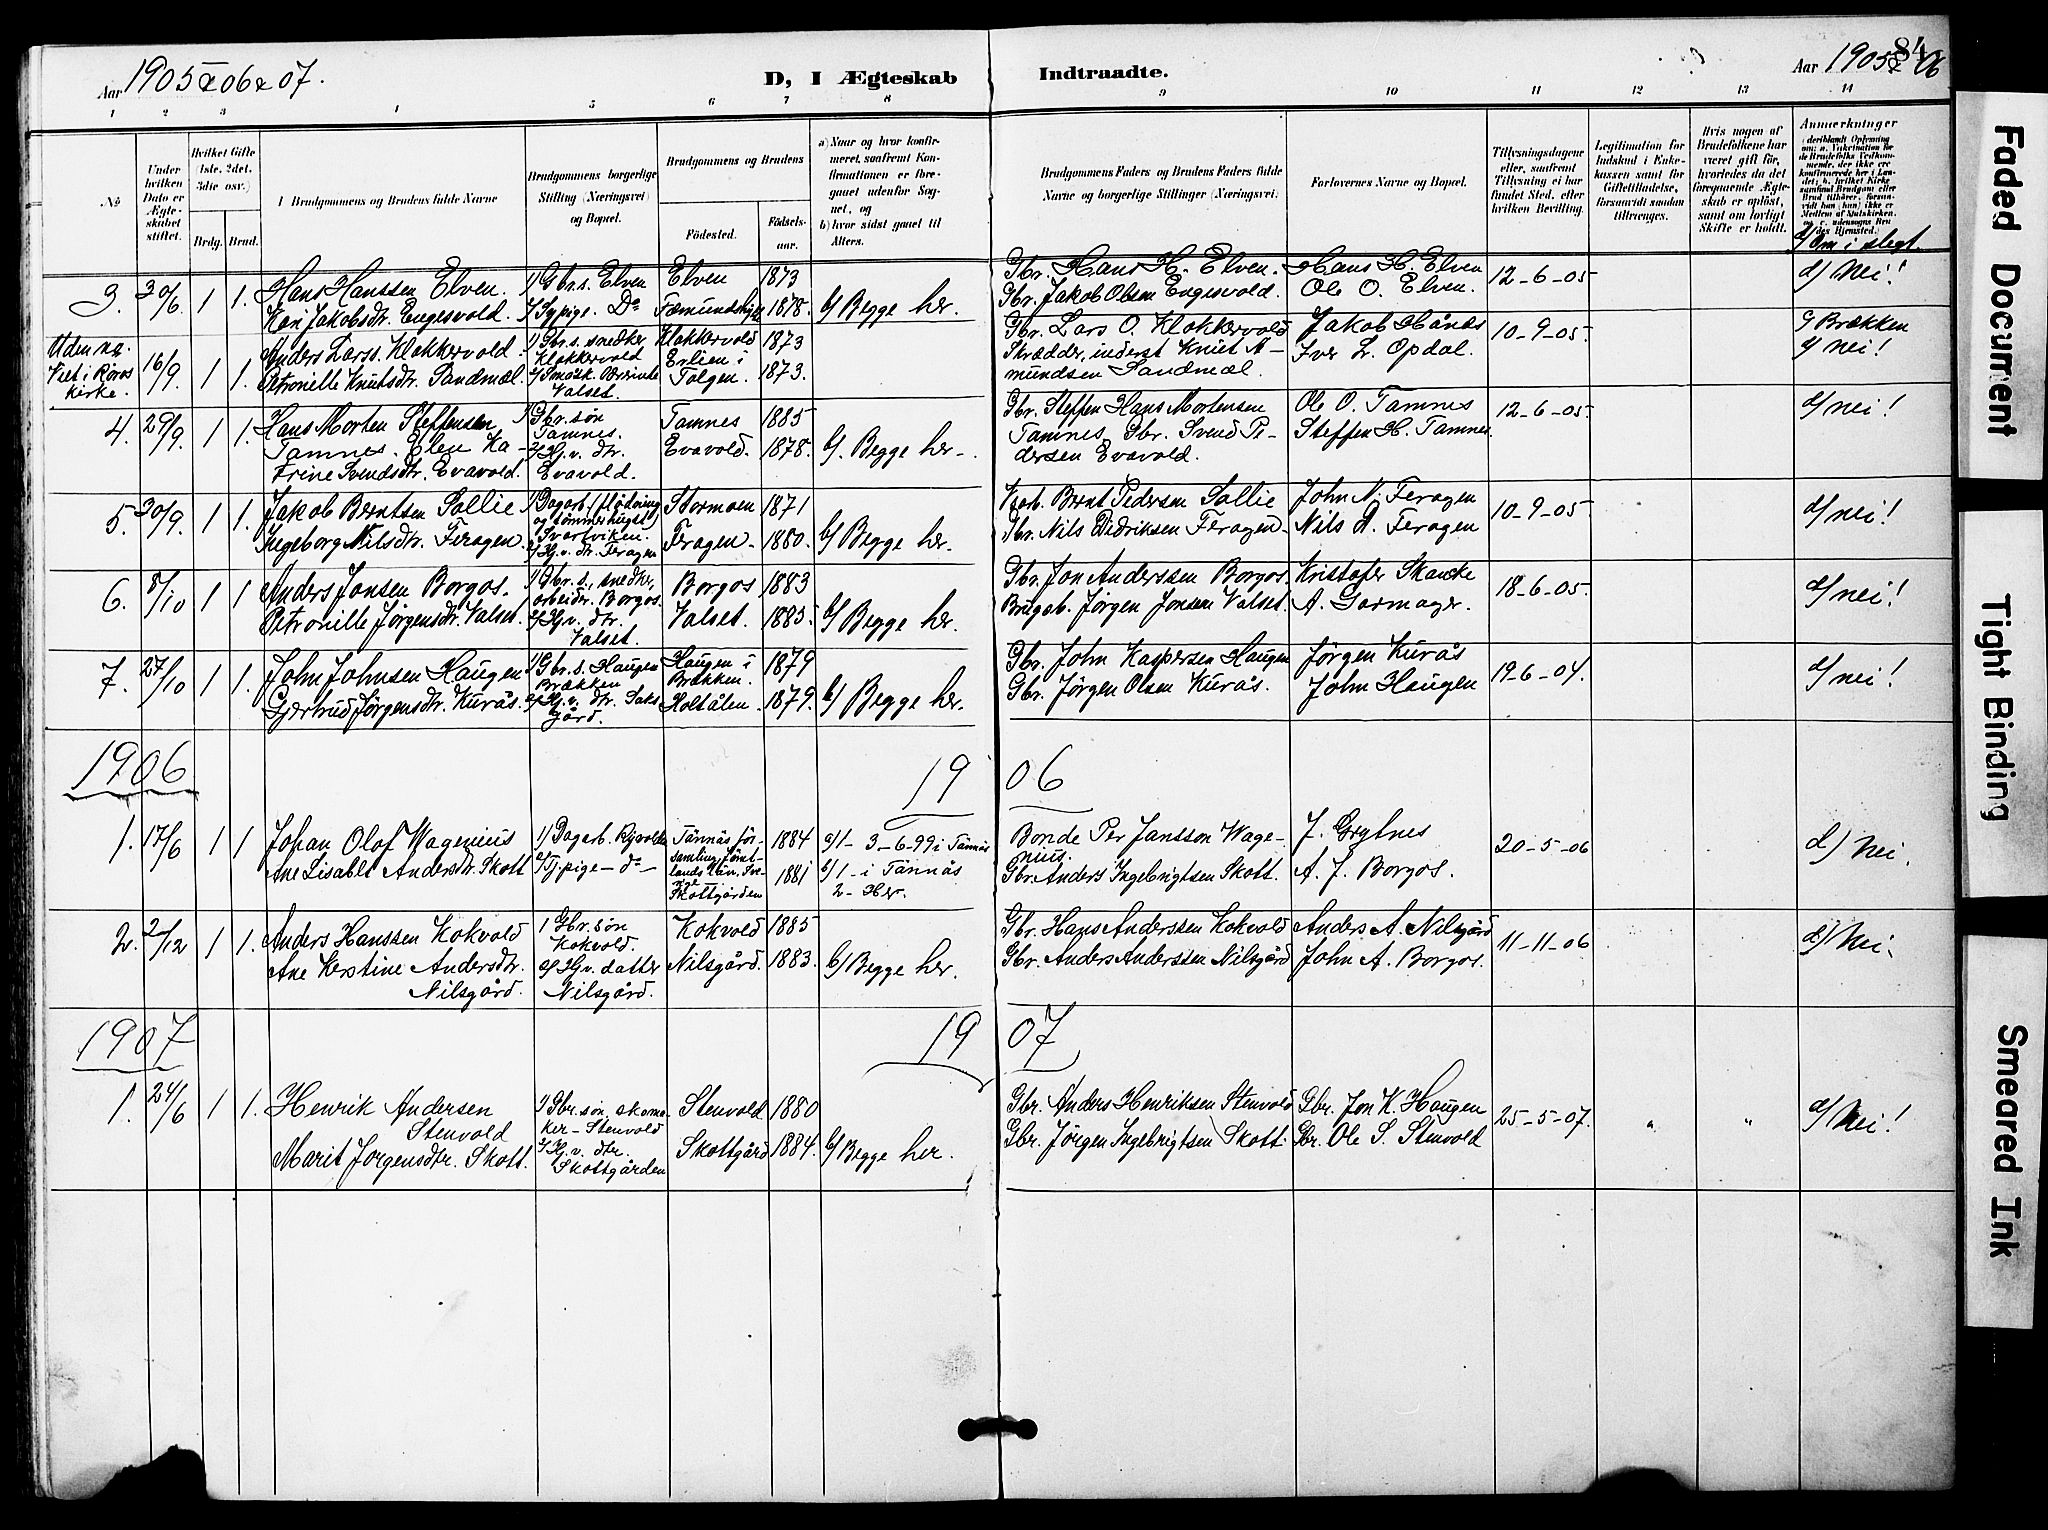 Aar 1905 & 06 & 07.
D, I Ægteskab Indtraadte.
Aar 1905 & 06
84
1 2 3 4 5 6 7 8 9 10 11 12 13 14
No
Under hvilken Dato er Ægteskabet stiftet.
Hvilket Gifte (1ste, 2det, 3die osv.)
Brdg. Brud.
Brudgommens og Brudens fulde Navne
Brudgommens borgerlige Stilling (Næringsvei) og Bopæl.
Brudgommens og Brudens
Födested. Födselsaar.
a) Naar og hvor konfirmeret, saafremt Konfirmationen er foregaaet udenfor Sognet, og
b) hvor sidst gaaet til Alters.
Brudgommens Faders og Brudens Faders fulde Navne og borgerlige Stillinger (Næringsvei)
Forlovernes Navne og Bopæl.
Tillysningsdagene eller, saafremt Tillysning ei har fundet Sted, efter hvilken Bevilling.
Legitimation for Indskud i Enkekassen samt for Giftetilladelse, forsaavidt saadan tiltrænges.
Hvis nogen af Brudefolkene har været gift för, hvorledes da det foregaaende Ægteskab er oplöst, samt om lovligt Skifte er holdt.
Anmerkninger
d/ Om i slegt.
3. 30/6 1 1. Hans Hanssen Elven. 1) Gbr.s. Elven Elven 1873 Gbr. Hans H. Elven. Hans H. Elven 12-6-05 d/ Nei!
Kari Jakobsdtr. Engesvold. 2/ Sypige. Do 1878. b/ Begge her. Gbr. Jakob Olsen Engesvold. Ole O. Elven.
Uden no. Viet i Röros kirke. 16/9. 1 1. Anders Larss. Klokkervold. 1) Gbr.s. snedker Klokkervold Klokkervold 1873 Gbr. Lars O. Klokkervold Jakob Hånes 10-9-05. Brækken
Petronille Knutsdtr. Sandmæl. Valset. Erlien i Tolgen. 1873. Skrædder, inderst Knut Amundsen Sandmæl. Iver L. Opdal. d/ nei!
4. 29/9. 1 1. Hans Morten Steffensen Tamnes. 1/ Gbr.søn Tamnes. Tamnes 1885 Gbr. Steffen Hans Mortensen Tamnes, Ole O. Tamnes 12-6-05 d/ nei!
Elen Katrine Svendsdtr. Evavold. 2/ Hj.v. dtr. Evavold. Evavold. 1878. b/. Begge her. Gbr. Svend Pedersen Evavold. Steffen H. Tamnes.
5. 30/9. 1 1. Jakob Berntsen Sollie 1) Dagarb. (flödning og tömmerhugst) Svartviken. Stormoen 1871 Bernt Pedersen Sollie John N. Feragen 10-9-05 d/ nei!
Ingeborg Nilsdtr. Feragen. 2/ Hj.v. dtr. Feragen Feragen. 1880. b/ Begge her. Gbr. Nils Didriksen Feragen. Nils D. Feragen
6. 8/10 1 1 Anders Jonsen Borgos. 1/ Gbr.s., snedkerarbeider. Borgos. Borgos 1883 Gbr. Jon Anderssen Borgos. Kristofer Skancke 18-6-05. d/ nei!
Petronille Jørgensdtr. Valset. 2/ Hj.v. dtr. Valset. Valset. 1885. b/ Begge her. Brugab. Jørgen Jonsen Valset. A. Gormager.
7. 27/10 1 1. John Johnsen Haugen 1/ Gbr.s. Haugen Brækken Haugen i Brækken. 1879 Gbr. John Kaspersen Haugen Jørgen Kurås 19-6-04. d/ nei!
Gjertrud Jørgensdtr. Kurås. 2/ Hj.v. dtr. Saksgård. Holtålen. 1879. b/ Begge her. Gbr. Jørgen Olsen Kurås. John Haugen
1906 19 06
1. 17/6 1 1 Johan Olof Wagenius 1) Dagarb. Tännäs församling, Jämtlands län, 1884 a/1- 3-6-99 i Tännäs Bonde Per Jansson Wagenius. J. Grytnes 20-5-06 d/ Nei.
Ane Lisabet Andersdtr. Skott 2/ Tj.pige - do - Skottgården 1881 b/1- i Tännäs 2- Her. Gbr. Anders Ingebrigtsen Skott. A. J. Borgos.
2. 2/12 1 1. Anders Hanssen Kokvold 1 Gbr.søn Kokvold. Kokvold 1885 Gbr. Hans Anderssen Kokvold Anders A. Nilsgård 11-11-06 d/ Nei.
Ane Kerstine Andersdtr. Nilsgård. 2/ Hj.v. datter Nilsgård. Nilsgård. 1883. b/ Begge her. Gbr. Anders Anderssen Nilsgård John A. Borgos.
1907 19 07
1. 24/6 1 1. Henrik Andersen Stenvold 1/ Gbr.søn, skomaker - Stenvold Stenvold 1880 Gbr. Anders Henriksen Stenvold Gbr. Jon K. Haugen 25-5-07. " " d/ Nei!
Marit Jørgensdtr. Skott. 2/ Hj.v. dtr. Skottgården Skottgård 1884. b/ Begge her. Gbr. Jørgen Ingebrigtsen Skott. Gbr. Ole S. Stenvold
Faded Document
Tight Binding
Smeared Ink